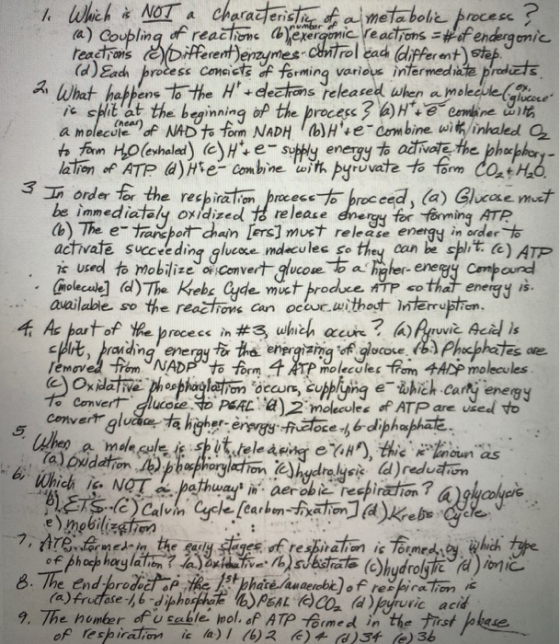 1. Which is NOT a characteristic of a metabolic process?
(a) Coupling of reactions (b) number of exergonic reactions = # of endergonic
reactions (c) (Different) enzymes control each (different) step.
(d) Each process consists of forming various intermediate products.
2. What happens to the H⁺ + electrons released when a molecule (ex. glucose)
is split at the beginning of the process? (a) H⁺ + e⁻ combine with
a molecule (near) of NAD to form NADH (b) H⁺ + e⁻ combine with inhaled O₂
to form H₂O (exhaled) (c) H⁺ + e⁻ supply energy to activate the phosphory-
lation of ATP (d) H⁺ + e⁻ combine with pyruvate to form CO₂ + H₂O.
3 In order for the respiration process to proceed, (a) Glucose must
be immediately oxidized to release energy for forming ATP.
(b) The e⁻ transport chain [ETS] must release energy in order to
activate succeeding glucose molecules so they can be split. (c) ATP
is used to mobilize or convert glucose to a higher-energy compound
[molecule] (d) The Krebs Cycle must produce ATP so that energy is
available so the reactions can occur without interruption.
4. As part of the process in #3, which occurs? (a) Pyruvic Acid is
split, providing energy for the energizing of glucose (b) Phosphates are
removed from NADP to form 4 ATP molecules from 4 ADP molecules
(c) Oxidative phosphorylation occurs, supplying e⁻ which carry energy
to convert glucose to PGAL (d) 2 molecules of ATP are used to
convert glucose to higher-energy fructose-1,6-diphosphate.
5. When a molecule is split, releasing e⁻ (+H⁺), this is known as
(a) Oxidation (b) phosphorylation (c) hydrolysis (d) reduction
6. Which is NOT a pathway in aerobic respiration? (a) glycolysis
b) ETS (c) Calvin Cycle [carbon-fixation] (d) Krebs Cycle
e) mobilization
7. ATP formed in the early stages of respiration is formed by which type
of phosphorylation? (a) oxidative (b) substrate (c) hydrolytic (d) ionic
8. The end-product of the 1st phase (anaerobic) of respiration is
(a) fructose-1,6-diphosphate (b) PGAL (c) CO₂ (d) pyruvic acid
9. The number of usable mol. of ATP formed in the first phase
of respiration is (a) 1 (b) 2 (c) 4 (d) 34 (e) 36